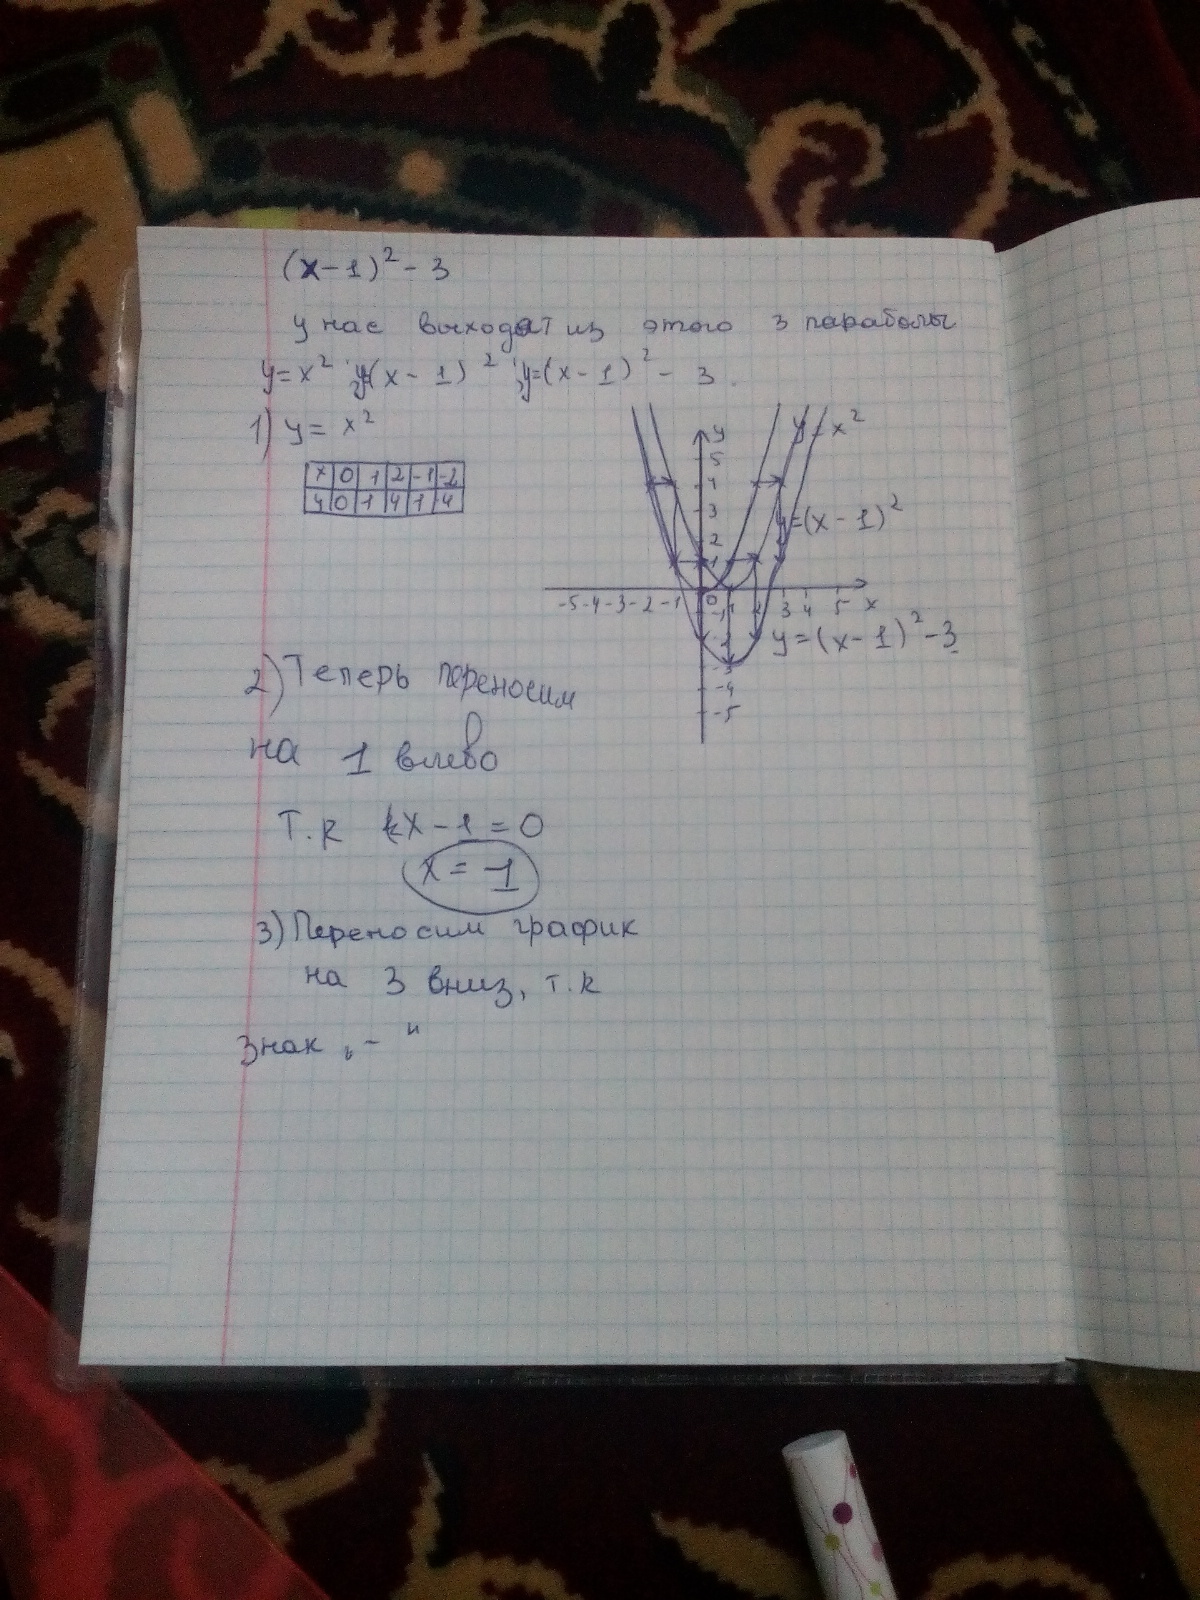 (x-1)² - 3
у нас выходят из этого 3 параболы
y=x² ; y=(x-1)² ; y=(x-1)² - 3.
1) y = x²
x 0 1 2 -1 -2
y 0 1 4 1 4
y
y=x²
5
4
3
2
1
y=(x-1)²
-5 -4 -3 -2 -1 0 1 2 3 4 5 x
-1
-2
-3
-4
-5
y=(x-1)²-3
2) Теперь переносим
на 1 влево
т.к x-1=0
x = -1
3) Переносим график
на 3 вниз, т.к
знак „-"